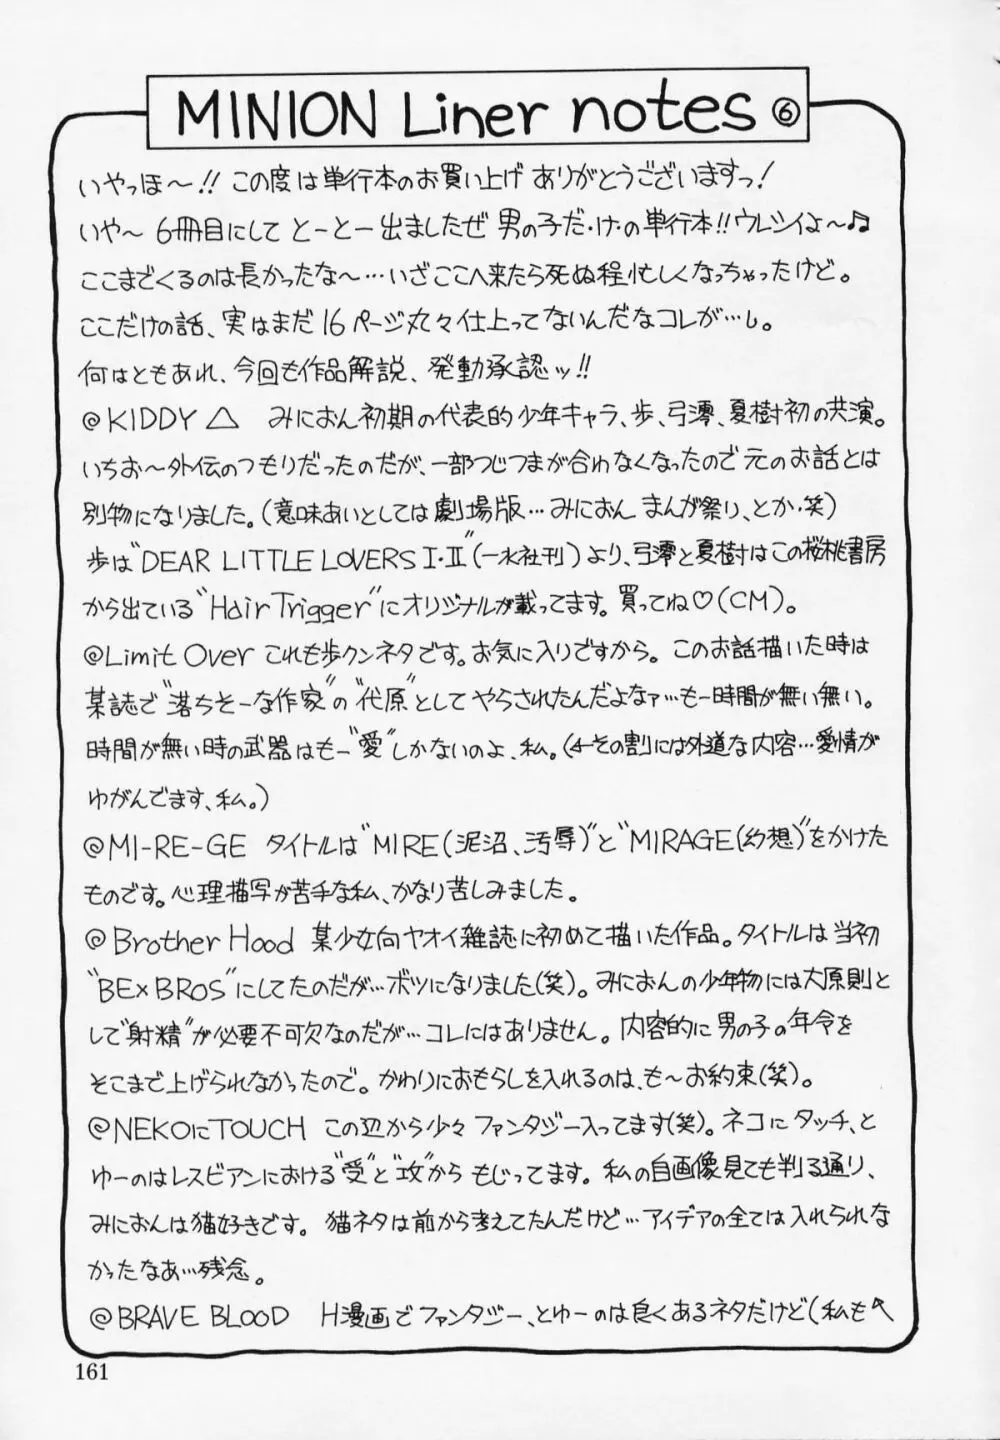 MINION Liner notes ⑥
いやっほ〜!! この度は単行本のお買い上げ ありがとうございますっ!
いや〜 6冊目にして とーとー出ましたぜ 男の子だ・け・の単行本!! ウレシイよ〜♫
ここまでくるのは長かったな〜…いざここへ来たら死ぬ程忙しくなっちゃったけど。
ここだけの話、実はまだ16ページ丸々仕上ってないんだなコレが…し。
何はともあれ、今回も作品解説、発動承認ッ!!
@KIDDY △ みにおん初期の代表的少年キャラ、歩、弓澪、夏樹初の共演。
いちお〜外伝のつもりだったのだが、一部つじつまが合わなくなったので元のお話とは
別物になりました。(意味あいとしては劇場版…みにおん まんが祭り、とか・笑)
歩は"DEAR LITTLE LOVERS I・II"(一水社刊)より、弓澪と夏樹はこの桜桃書房
から出ている"Hair Trigger"にオリジナルが載ってます。買ってね♡(CM)。
@Limit Over これも歩クンネタです。お気に入りですから。このお話描いた時は
某誌で"落ちそーな作家"の"代原"としてやらされたんだよなァ…もー時間が無い無い。
時間が無い時の武器はもー"愛"しかないのよ、私。(←その割には外道な内容…愛情が
ゆがんでます、私。)
@MI-RE-GE タイトルは"MIRE(泥沼、汚辱)"と"MIRAGE(幻想)"をかけた
ものです。心理描写が苦手な私、かなり苦しみました。
@Brother Hood 某少女向ヤオイ雑誌に初めて描いた作品。タイトルは当初
"BE×BROS"にしてたのだが…ボツになりました(笑)。みにおんの少年物には大原則と
して"射精"が必要不可欠なのだが…コレにはありません。内容的に男の子の年令を
そこまで上げられなかったので。かわりにおもらしを入れるのは、も〜お約束(笑)。
@NEKOにTOUCH この辺から少々ファンタジー入ってます(笑)。ネコにタッチ、と
ゆーのはレスビアンにおける"受"と"攻"からもじってます。私の自画像見ても判る通り、
みにおんは猫好きです。猫ネタは前から考えてたんだけど…アイデアの全ては入れられな
かったなあ…残念。
@BRAVE BLOOD H漫画でファンタジー、とゆーのは良くあるネタだけど(私も↖
161